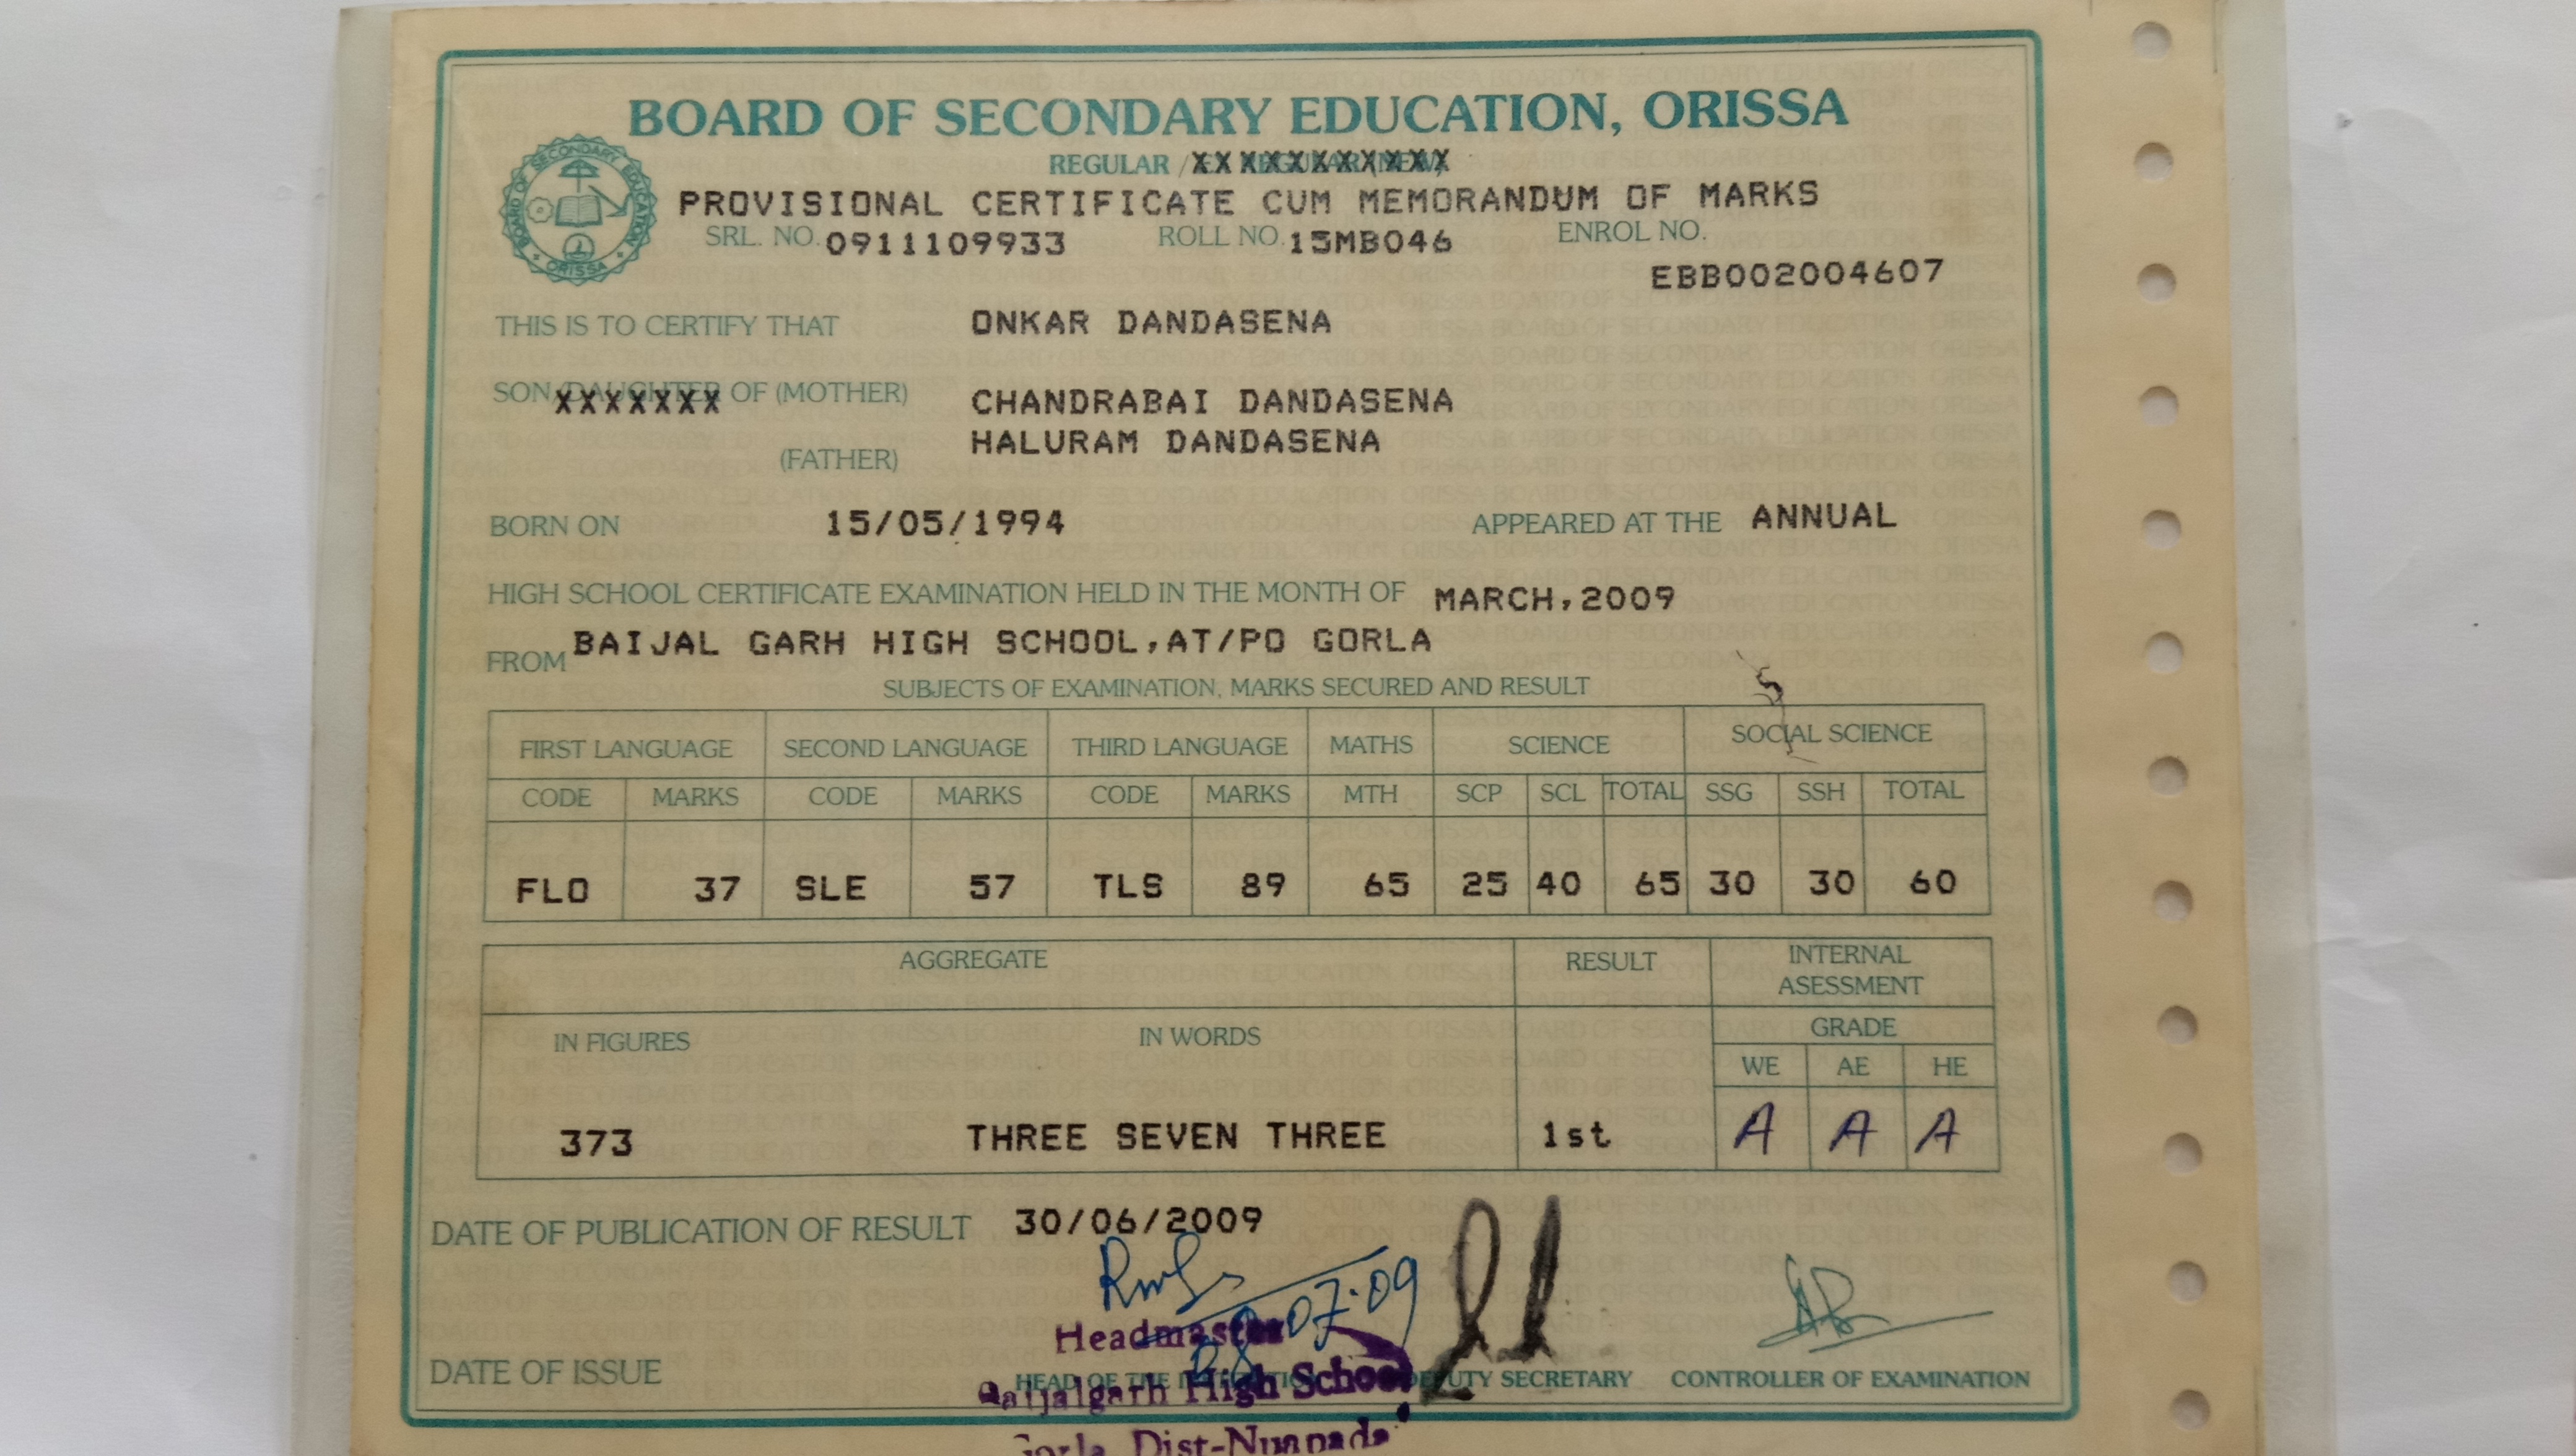 BOARD OF SECONDARY EDUCATION, ORISSA
REGULAR / XX XXXXXXXXXX
PROVISIONAL CERTIFICATE CUM MEMORANDUM OF MARKS
SRL. NO. 0911109933 ROLL NO. 15MB046 ENROL NO.
EBB002004607
BOARD OF SECONDARY EDUCATION ORISSA
THIS IS TO CERTIFY THAT ONKAR DANDASENA
SON/DAUGHTER OF (MOTHER) CHANDRABAI DANDASENA
XXXXXXX
(FATHER) HALURAM DANDASENA
BORN ON 15/05/1994 APPEARED AT THE ANNUAL
HIGH SCHOOL CERTIFICATE EXAMINATION HELD IN THE MONTH OF MARCH,2009
FROM BAIJAL GARH HIGH SCHOOL,AT/PO GORLA
SUBJECTS OF EXAMINATION, MARKS SECURED AND RESULT
FIRST LANGUAGE SECOND LANGUAGE THIRD LANGUAGE MATHS SCIENCE SOCIAL SCIENCE
CODE MARKS CODE MARKS CODE MARKS MTH SCP SCL TOTAL SSG SSH TOTAL
FLO 37 SLE 57 TLS 89 65 25 40 65 30 30 60
AGGREGATE RESULT INTERNAL
ASESSMENT
IN FIGURES IN WORDS GRADE
WE AE HE
373 THREE SEVEN THREE 1st A A A
DATE OF PUBLICATION OF RESULT 30/06/2009
07.09
Headmaster
DATE OF ISSUE HEAD OF THE DEPUTY SECRETARY CONTROLLER OF EXAMINATION
Baijalgarh High School
Gorla, Dist-Nuapada